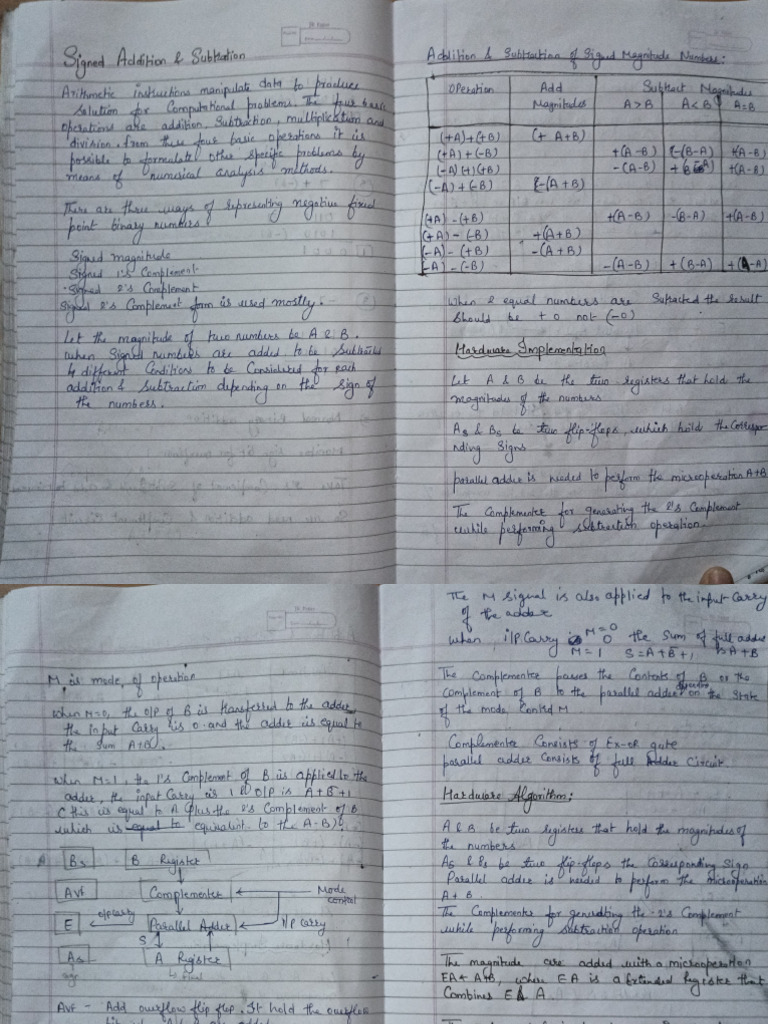 Signed Addition & Subtration
Arithmetic instructions manipulate data to produce
solution for Computational problems. The four basic
operations are addition, Subtraction, multiplication and
division. From these four basic operations it is
possible to formulate other specific problems by
means of numerical analysis methods.
There are three ways of representing negative fixed
point binary numbers
Signed magnitude
Signed 1's Complement
Signed 2's Complement
Signed 2's Complement form is used mostly.
Let the magnitude of two numbers be A & B.
when Signed numbers are added to be Subtracted
4 different Conditions to be Considered for each
addition & Subtraction depending on the sign of
the numbers.
Addition & Subtraction of Signed Magnitude Numbers:
Operation Add Subtract Magnitudes
Magnitudes A>B A<B A=B
(+A)+(+B) (+ A+B)
(+A)+(-B) +(A-B) -(B-A) +(A-B)
(-A)(+)(+B) -(A-B) +(B-A) +(A-B)
(-A)+(-B) -(A+B)
(+A)-(+B) +(A-B) -(B-A) +(A-B)
(+A)-(-B) +(A+B)
(-A)-(+B) -(A+B)
-A)-(-B) -(A-B) +(B-A) +(A-A)
when 2 equal numbers are Subracted the result
Should be +0 not (-0)
Hardware Implementation
Let A & B be the two registers that hold the
magnitudes of the numbers
As & Bs be two flip-flops, which hold the Correspo-
nding Signs
parallel adder is needed to perform the microoperation A+B
The Complementer for generating the 2's Complement
while performing subtraction operation.
M is mode of operation
when M=0, the O/P of B is transferred to the adder,
the input Carry is 0 and the adder is equal to
the sum A+B.
when M=1, the 1's Complement of B is applied to the
adder, the input Carry is 1 & O/P is A+B̄+1
(this is equal to A plus the 2's Complement of B
which is equal to equivalent to the A-B)
A Bs B Register
AVF Complementer Mode
Control
E O/p Carry Parallel Adder I/P Carry
S
As A Register
sign final
AVF - Add overflow flip flop. It hold the overflow
The M signal is also applied to the input Carry
of the adder
when i/p Carry is M=0 0 the sum of full adder
M=1 S=A+B̄+1, is A+B
The Complementer passes the Contents of B or the
Complement of B to the parallel adder on the State
of the mode Control M
Complementer Consists of Ex-OR gate
parallel adder Consists of full Adder Circuit.
Hardware Algorithm:
A & B be two registers that hold the magnitudes of
the numbers
As & Bs be two flip-flops the Corresponding Sign
Parallel adder is needed to perform the microoperation
A+B
The Complementer for generating the 2's Complement
while performing subtraction operation
The magnitude are added with a microoperation
EA← A+B, where EA is a Extended Register that
Combines E & A.